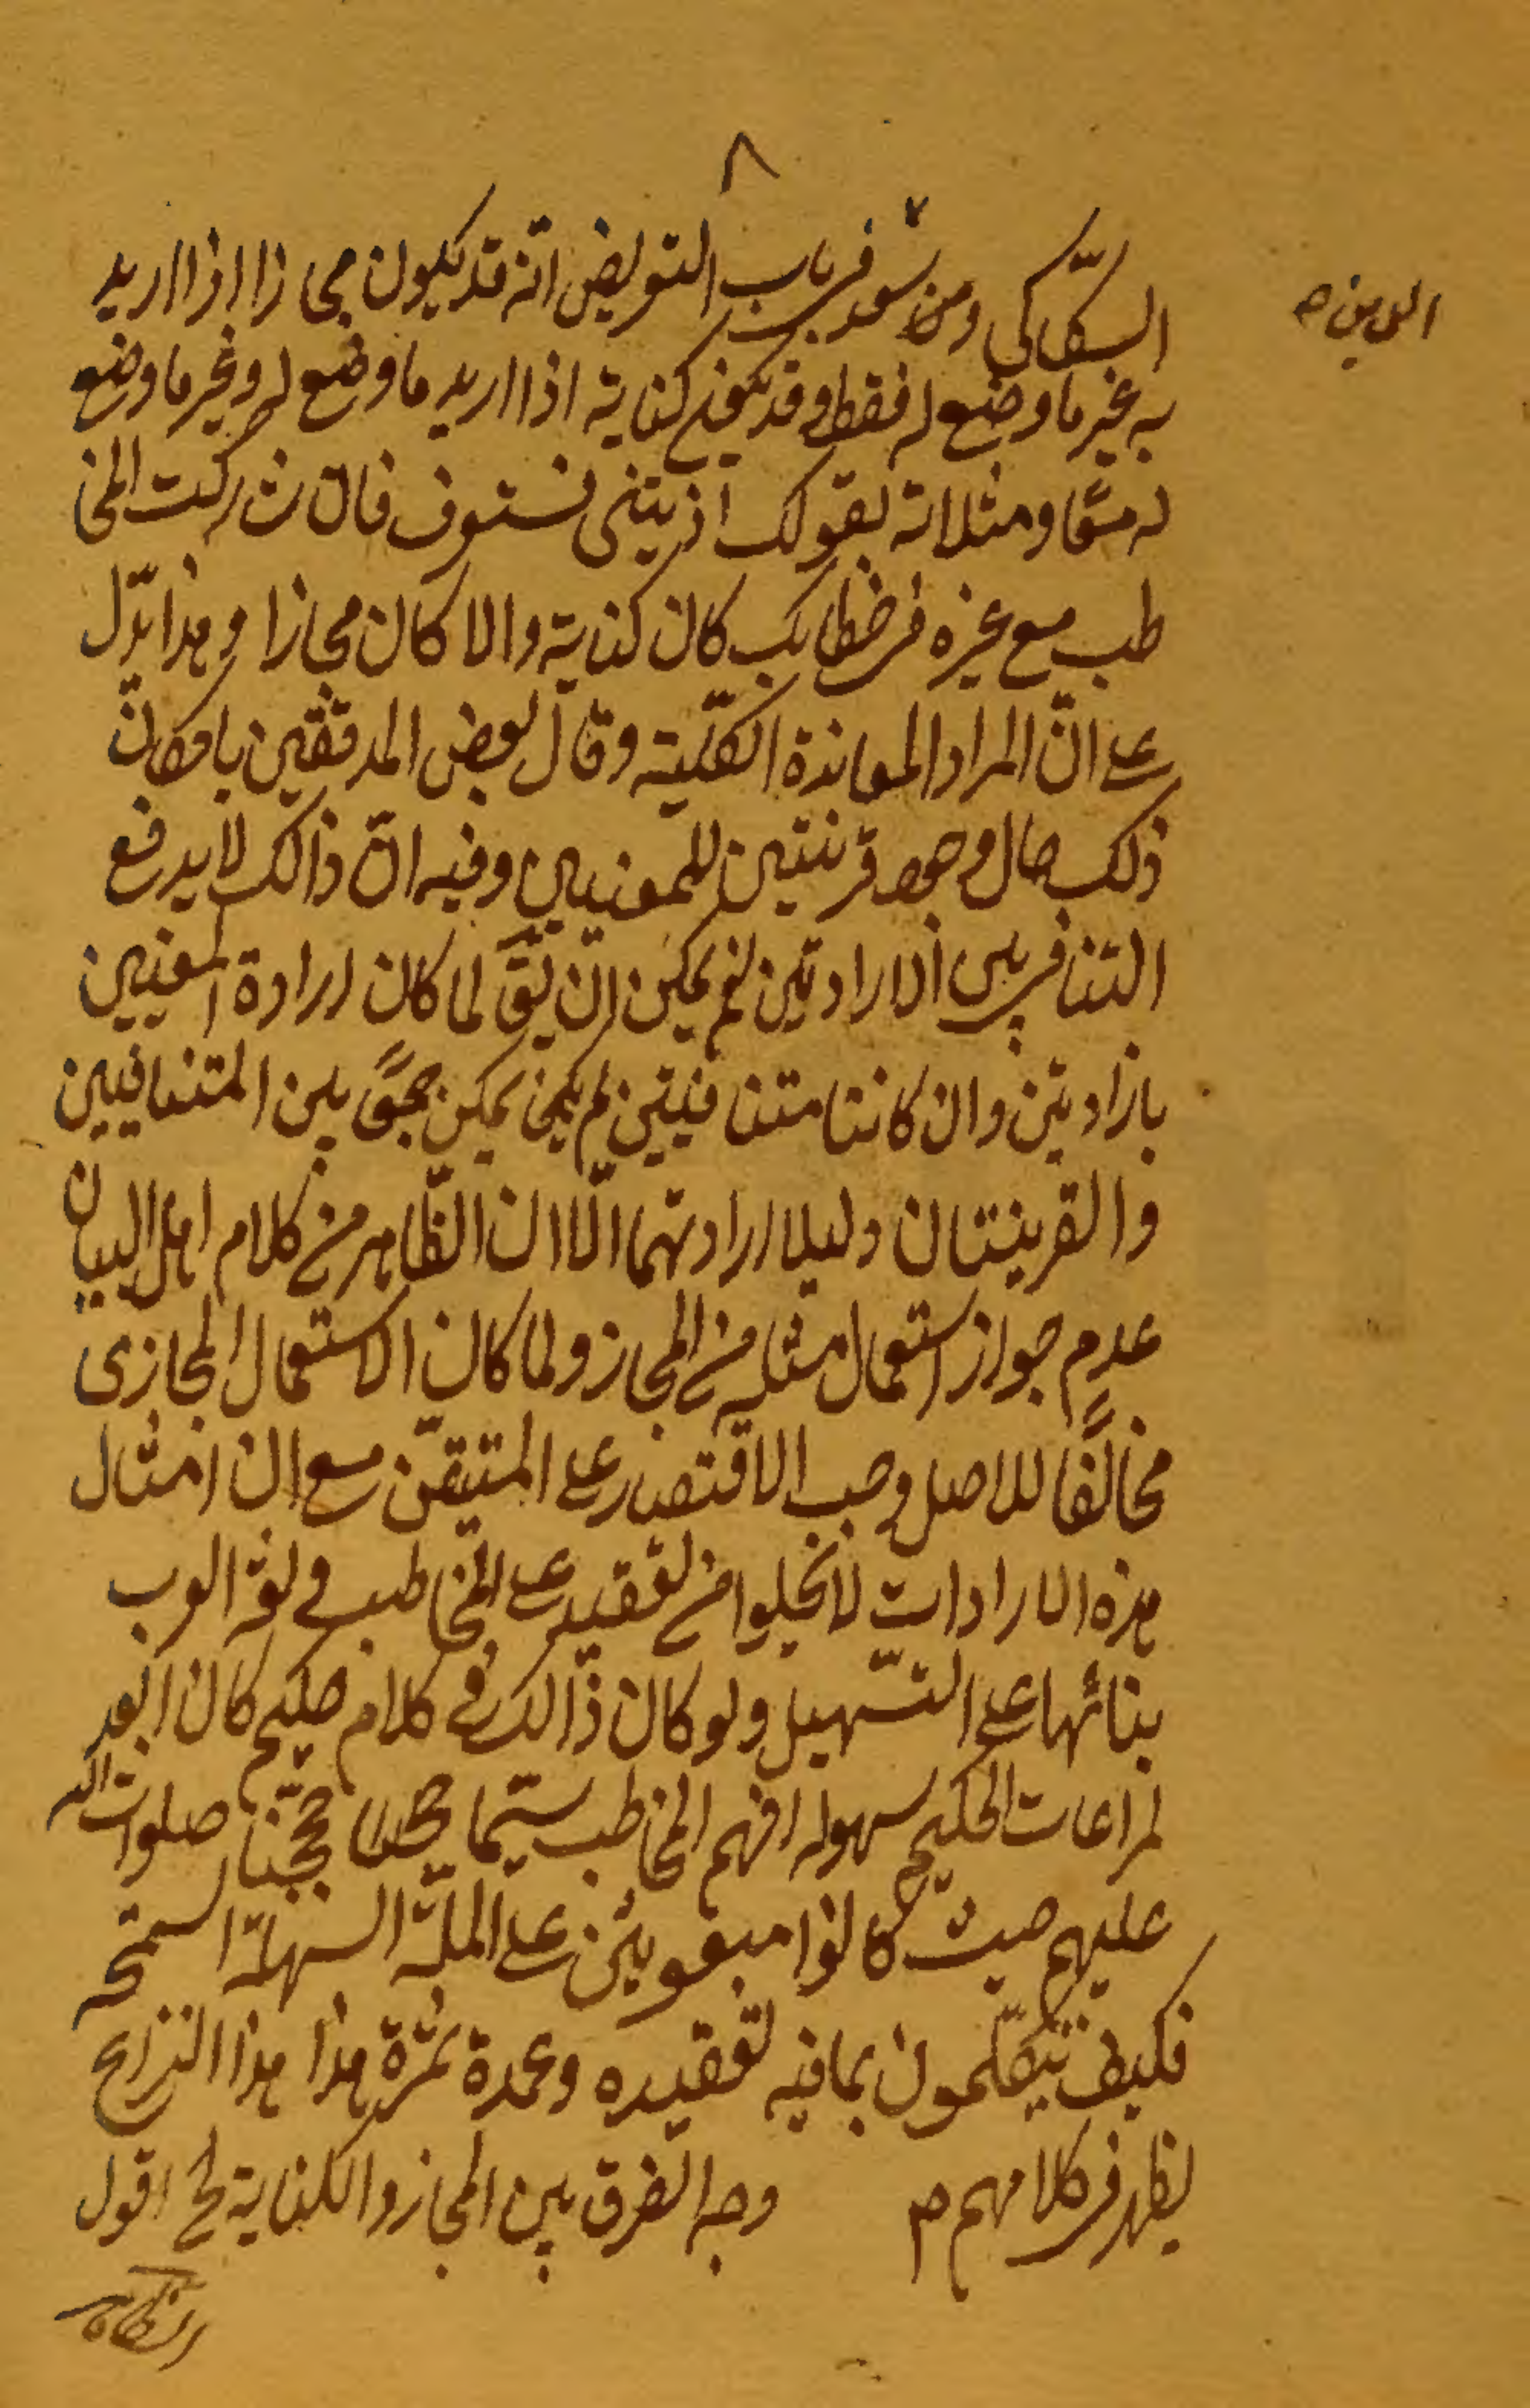 ٨
السكّاكى ومن سعد فى باب التعريض انّه قد يكون مجازا اذا اريد
الدين صح
به غير ما وضع له فقط وقد يكون كناية اذا اريد ما وضع له وغير ما وضع
له معًا ومثلا له بقولك اذيتنى فستعرف فان شركت المخا
طب مع غيره فى خطابك كان كناية والا كان مجازا وهذا يدّل
على انّ المراد المعاندة الكلّية وقال بعض المدققين بامكان
ذلك حال وجود قرينتين للمعنيين وفيه انّ ذالك لا يدفع
التنافى بين الارادتين نعم يمكن ان يقَ لما كان ارادة المعنيين
بارادتين وان كانتا متنافيتين لم يكن يمكن جمعًا بين المتنافيين
والقرينتان دليلا ارادتهما الّا ان الظّاهر من كلام اهل البيان
عدم جواز استعمال مثله من المجاز ولما كان الاستعمال المجازى
مخالفًا للاصل وجب الاقتصار على المتيقّن مع ان امثال
هذه الارادات لا تخلوا من تعقيد على المخاطب فى لغة العرب
بنائها على التّسهيل ولو كان ذالك فى كلام حكيم كان ابعد
لمراعات الحكيم سهولة افهم المخاطب سيّما حججنا صلوات الله
عليهم حيث كانوا مبعوثين على الملّة السّهلة السّمحة
فكيف يتكلّمون بما فيه تعقيده وعمدة ثمرة هذا هذا النزاع
يظهر فى كلامهم م وجه الفرق بين المجاز والكناية لخ اقول